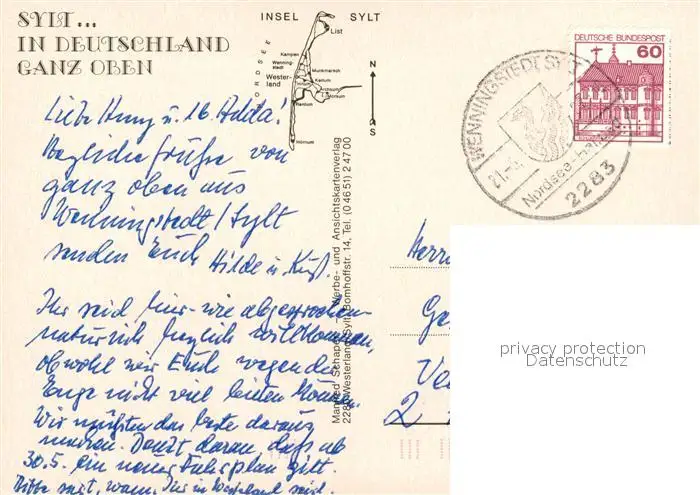 SYLT...
IN DEUTSCHLAND
GANZ OBEN
INSEL SYLT
NORDSEE
List
Kampen
Wenning-
stedt
Wester-
land
Munkmarsch
Keitum
Archsum
Morsum
Rantum
Hörnum
N
S
DEUTSCHE BUNDESPOST
60
WENNINGSTEDT, SYLT
21.-5.
Nordsee-
2283
Liebe u. lb. Adda!
Herzliche Grüße von
ganz oben aus
Wenningstedt/Sylt
senden Euch Hilde u.
Ihr seid hier - wie abgesprochen
natürlich herzlich willkommen,
obwohl wir Euch wegen der
Enge nicht viel bieten können.
Wir müßten das beste daraus
machen. Denkt daran, daß ab
30.5. ein neuer Fahrplan gilt.
Bitte sagt, wann Ihr in Westerland seid.
Manfred Schaper - Werbe- und Ansichtskartenverlag
2280 Westerland/Sylt, Bomhoffstr. 14, Tel. (0 46 51) 2 47 00
Herrn
Ge
Ve
2
privacy protection
Datenschutz